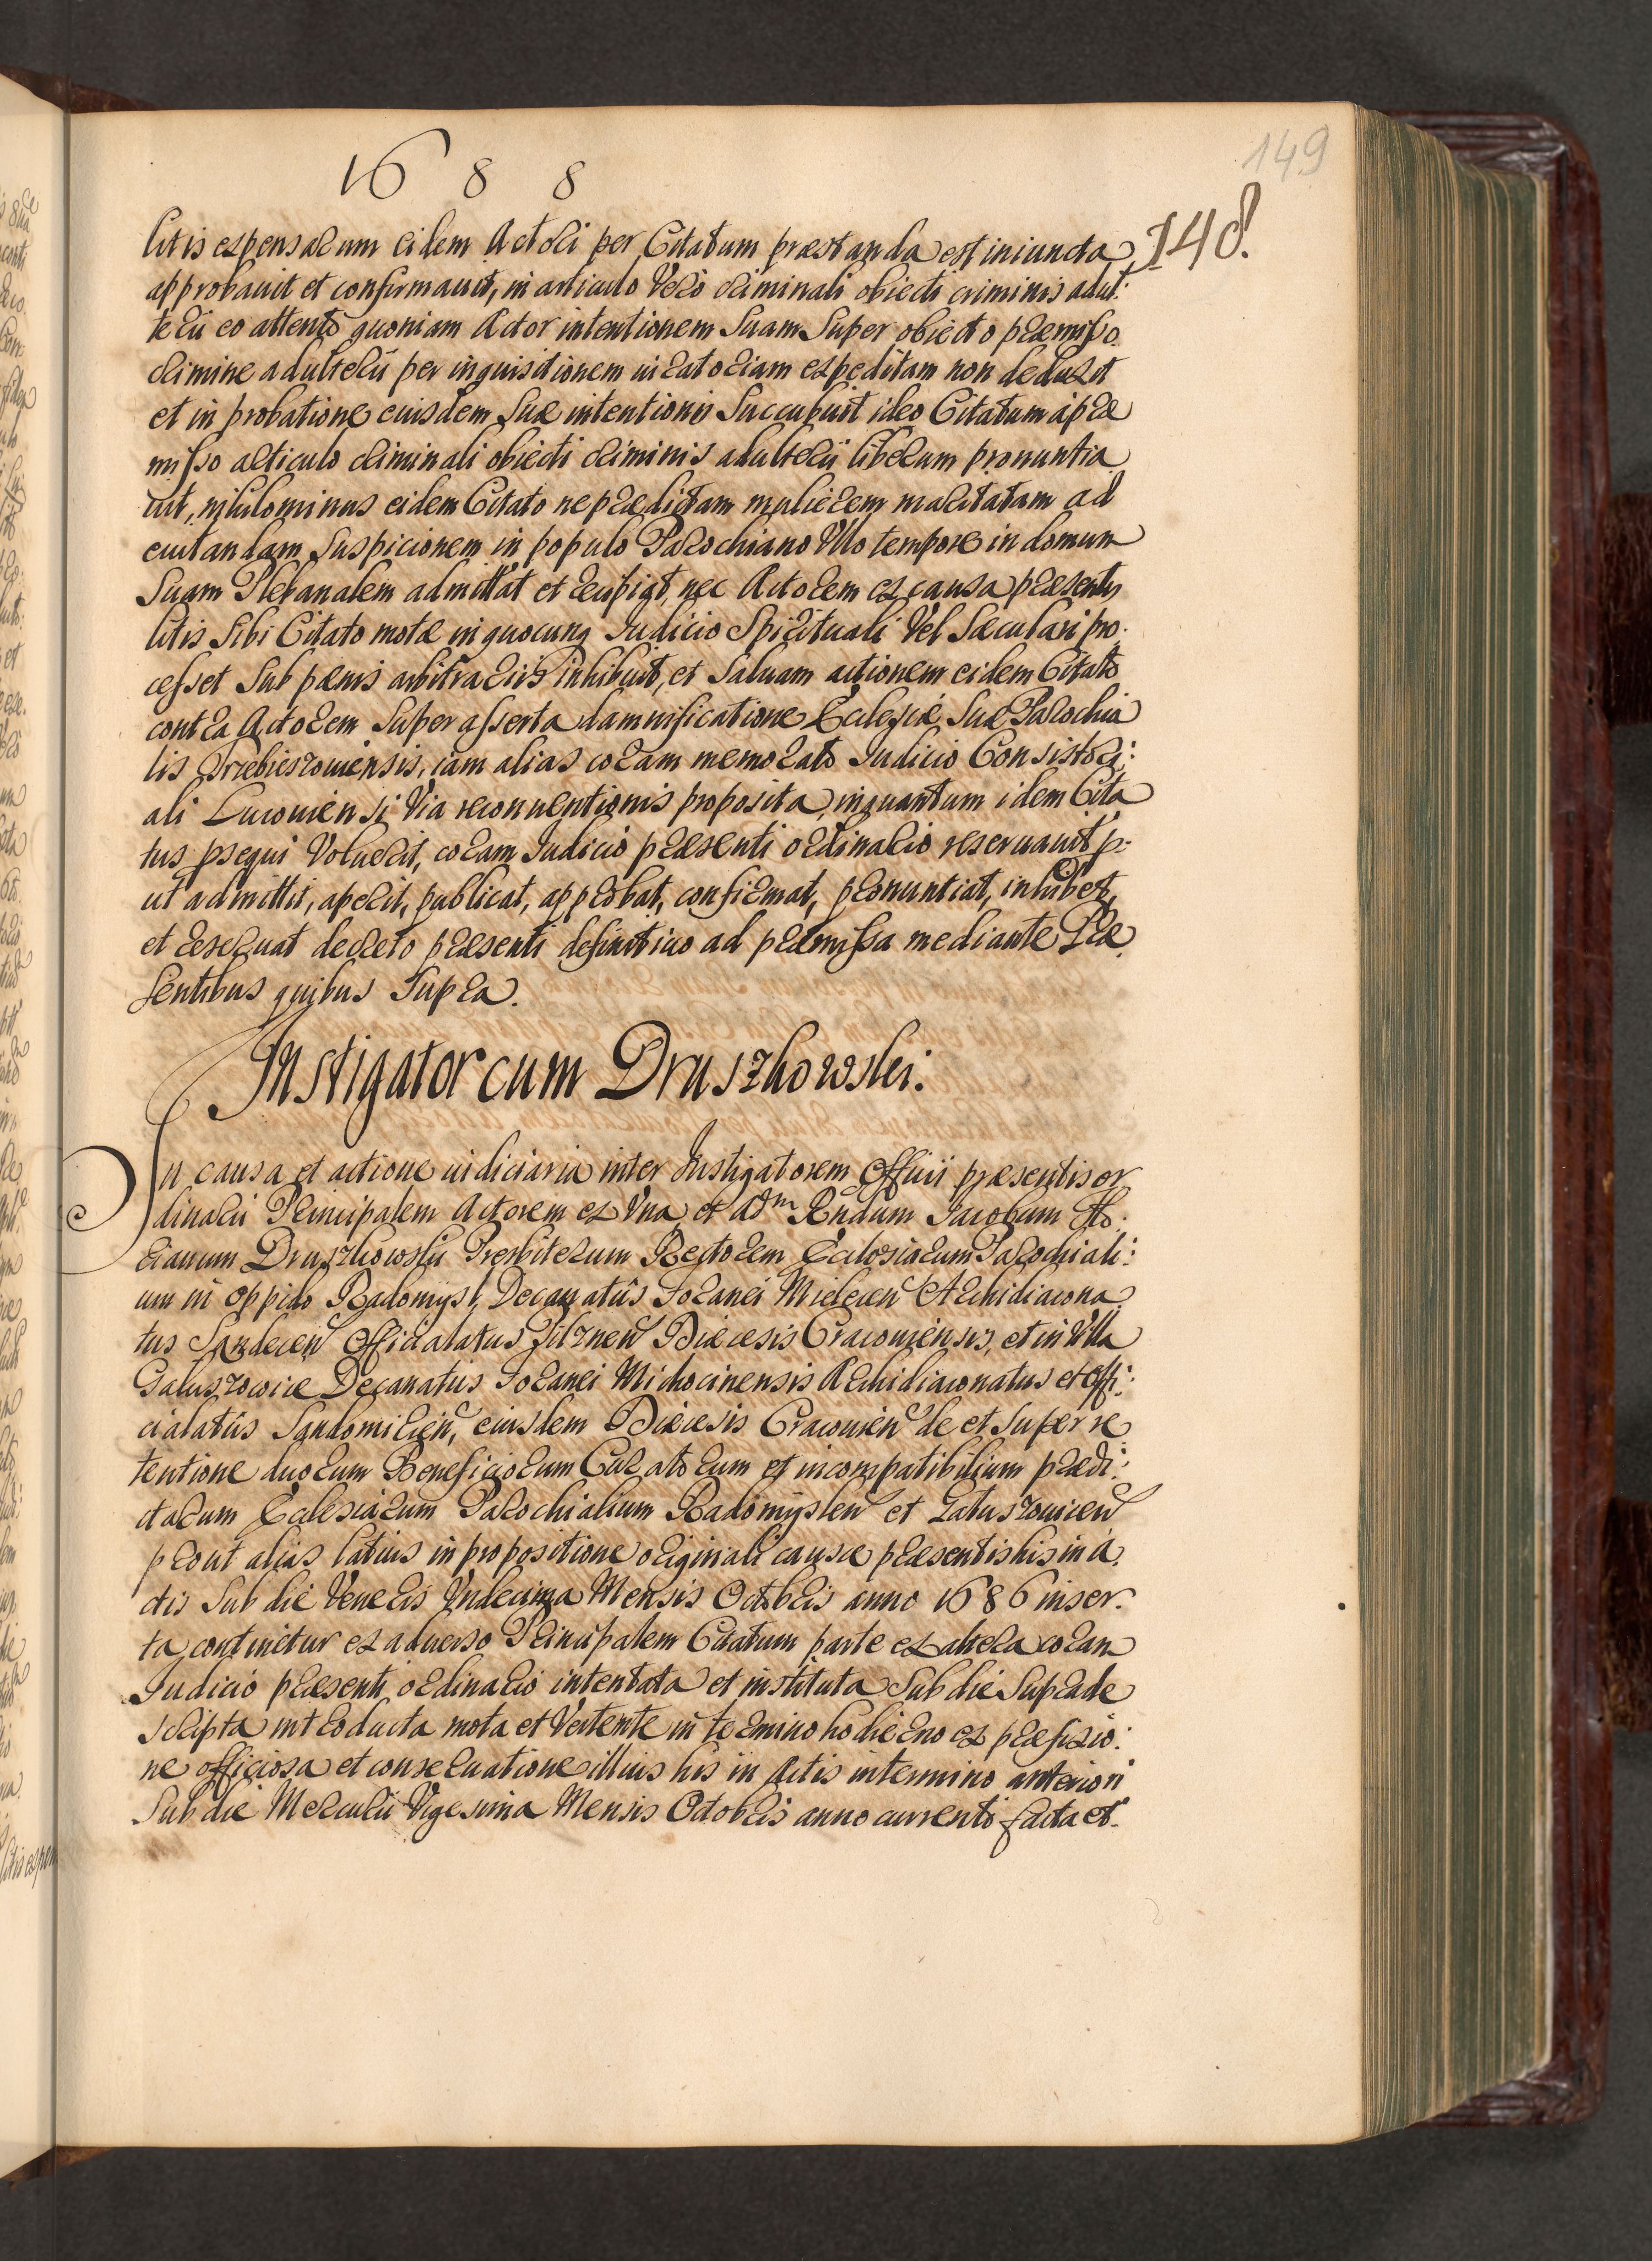 149
1688
148.
litis expensarum eidem Actori per Citatum præstanda est iniuncta,
approbauit et confirmauit, in articulo Vero criminali obiecti criminis adul:
terii eo attento quoniam Actor intentionem Suam Super obiecto præmisso
crimine adulterii per inquisitionem iuratoriam expeditam non deduxit
et in probatione euisdem Suæ intentionis Succubuit ideo Citatum à præ
misso articulo criminali obiecti criminis adulterii liberum pronuntia
uit, nihilominus eidem Citato ne prædictam mulierem maritatam ad
euitandam Suspicionem in populo Parochiano Vllo tempore in domum
Suam Plebanalem admittat et recipiat, nec Actorem ex causa præsentis
litis Sibi Citato motæ in quocunq Iudicio Spirituali Vel Sæculari pro:
cesset Sub pænis arbitrariis inhibuit, et Saluam actionem eidem Citato
contra Actorem Super asserta damnificatione Ecclesiæ Suæ Parochia
lis Trzebieszouiensis, iam alias coram memorato Iudicio Consistori:
ali Lucouiensi Via reconuentionis proposita, inquantum idem Cita
tus psequi Voluerit, coram Iudicio præsenti ordinario reseruauit p:
ut admittit, aperit, publicat, approbat, confirmat, pronuntiat, inhibet,
et reseruat decreto præsenti definitiuo ad præmissa mediante Præ
sentibus quibus Supra.
Instigator cum Druszkowski.
In causa et actione iudiciaria inter Instigatorem Officii præsentis or
dinarii Principalem Actorem ex Vna, et Adm Rndum Iacobum Flo:
rianum Druszkowski Presbiterum Rectorem Ecclesiarum Parochiali:
um in Oppido Radomysl, Decanatûs Foranei Mielecen Archidiacona
tus Sandecen Officialatus Pilznen Diæcesis Cracouiensis, et in Villa
Galuszowice Decanatûs Foranei Michocinensis Archidiaconatus et Offi:
cialatûs Sandomirien, eiusdem Diæcesis Cracouien de et Super re
tentione duorum Beneficiorum Curatorum et incompatibilium prædi:
ctarum Ecclesiarum Parochialium Radomyslen et Galuszouicen
prout alias latius in propositione originali causæ præsentis his in A:
ctis Sub die Veneris Vndecima Mensis Octobris anno 1686 inser:
ta continetur ex aduerso Principalem Citatum parte ex altera coram
Iudicio præsenti ordinario intentata et instituta Sub die Suprade
scripta introducta mota et Vertente in termino hodierno ex præfixio:
ne officiosa et conseruatione illius his in Actis in termino anteriori
Sub die Mercurii Vigesima Mensis Octobris anno currenti facta et